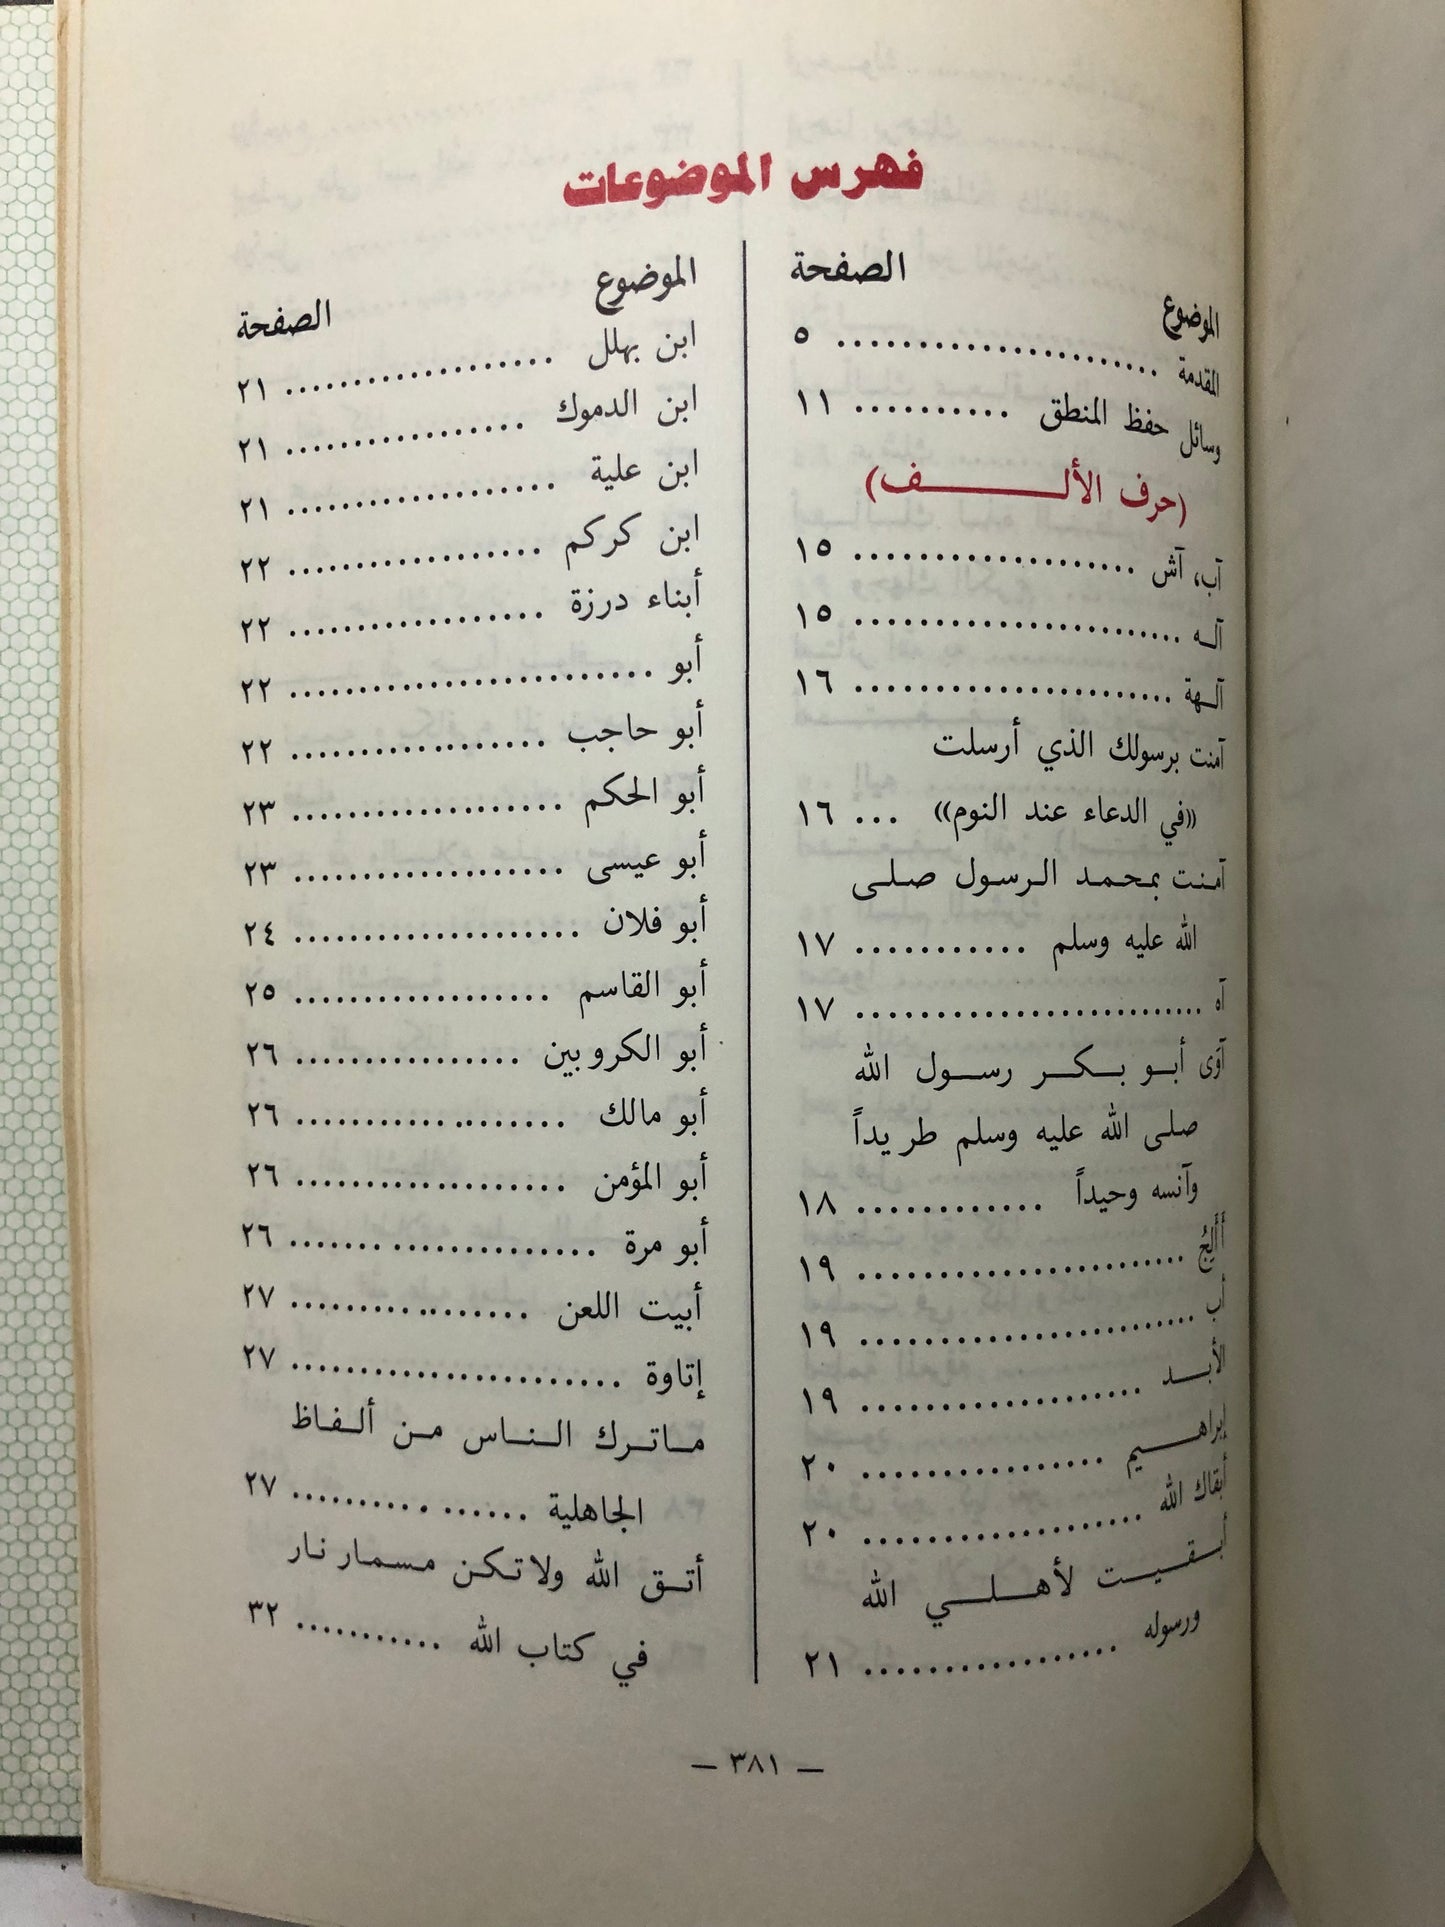 فهرس الموضوعات
الموضوع الصفحة
المقدمة ...................... ٥
وسائل حفظ المنطق .......... ١١
(حرف الألف)
آب، آش .................. ١٥
آله ...................... ١٥
آلهة ...................... ١٦
آمنت برسولك الذي أرسلت
«في الدعاء عند النوم» ... ١٦
آمنت بمحمد الرسول صلى
الله عليه وسلم ........... ١٧
آه ........................ ١٧
آوَى أبو بكر رسول الله
صلى الله عليه وسلم طريداً
وآنسه وحيداً ............ ١٨
أَأَلِجُ ...................... ١٩
أب ........................ ١٩
الأبد .................... ١٩
إبراهيم ................ ٢٠
أبقاك الله .................... ٢٠
أبقيت لأهلي الله
ورسوله ................. ٢١
الموضوع الصفحة
ابن بهلل .................... ٢١
ابن الدموك .................. ٢١
ابن علية .................... ٢١
ابن كركم .................. ٢٢
أبناء درزة .................. ٢٢
أبو .......................... ٢٢
أبو حاجب .................. ٢٢
أبو الحكم .................... ٢٣
أبو عيسى .................... ٢٣
أبو فلان .................... ٢٤
أبو القاسم .................. ٢٥
أبو الكروبين ................ ٢٦
أبو مالك .................... ٢٦
أبو المؤمن .................... ٢٦
أبو مرة ...................... ٢٦
أبيت اللعن .................. ٢٧
إتاوة ........................ ٢٧
ماترك الناس من ألفاظ
الجاهلية ................ ٢٧
أتق الله ولاتكن مسمار نار
في كتاب الله ........... ٣٢
— ٣٨١ —